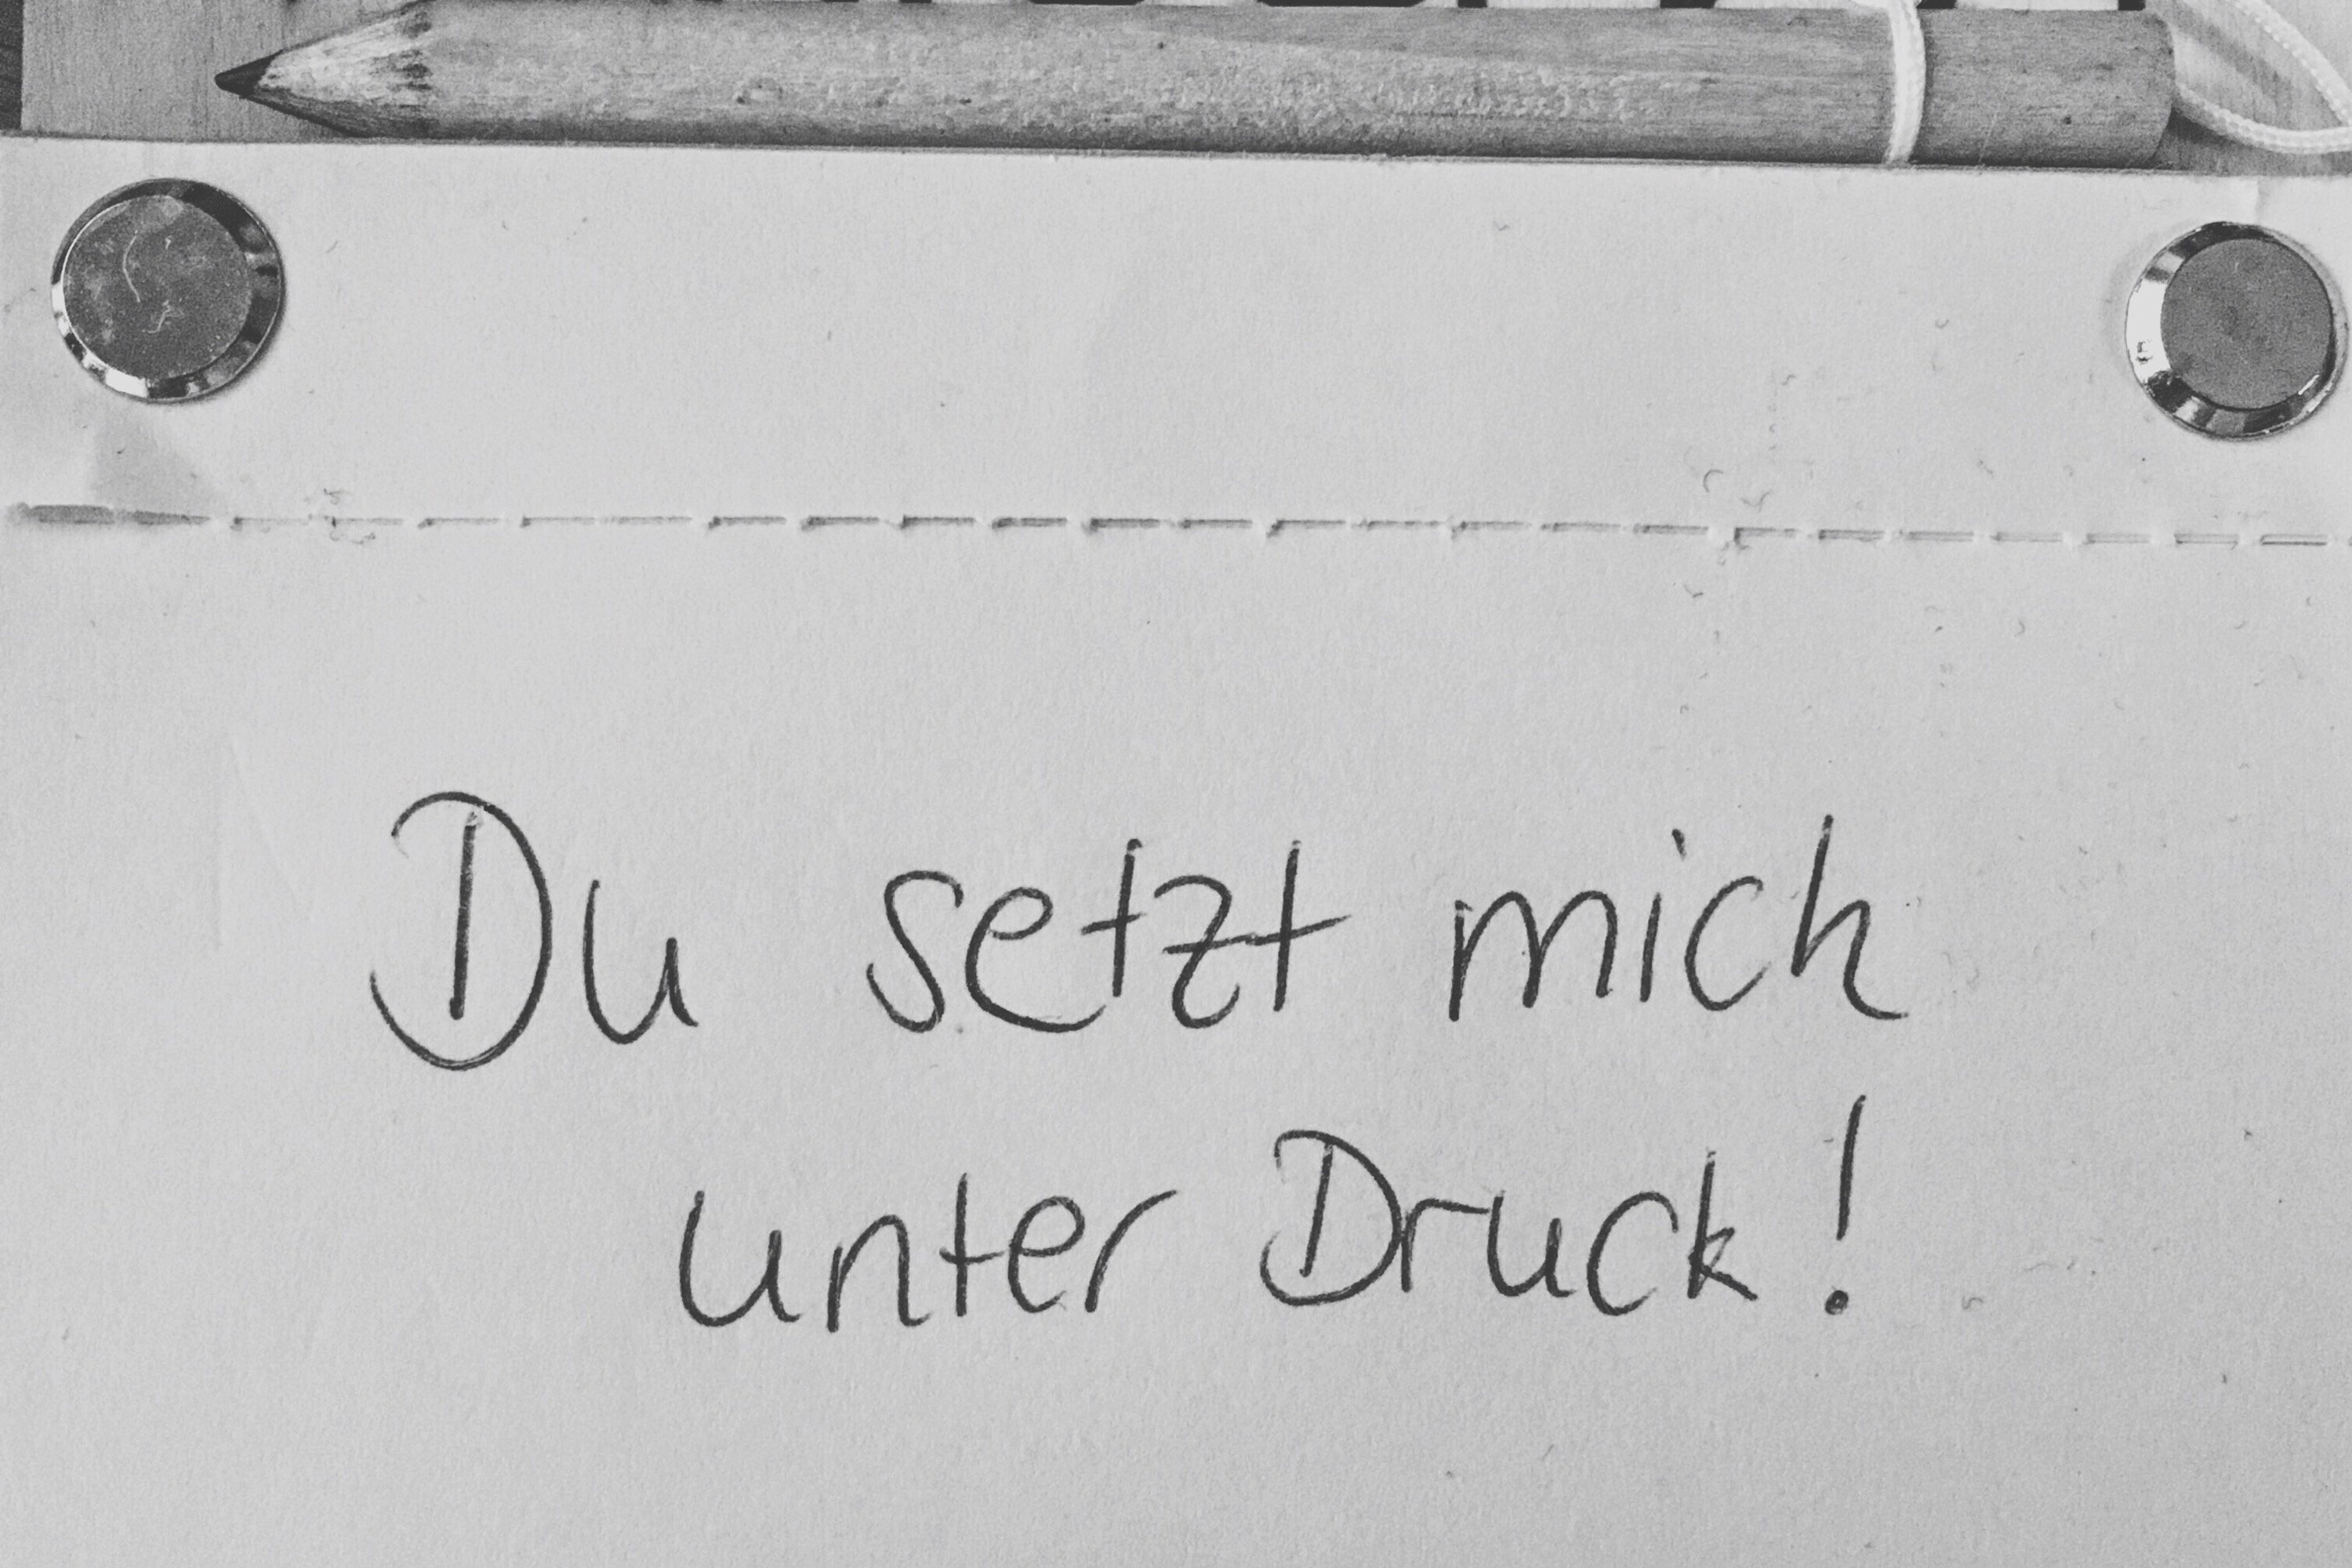 Du setzt mich
unter Druck!